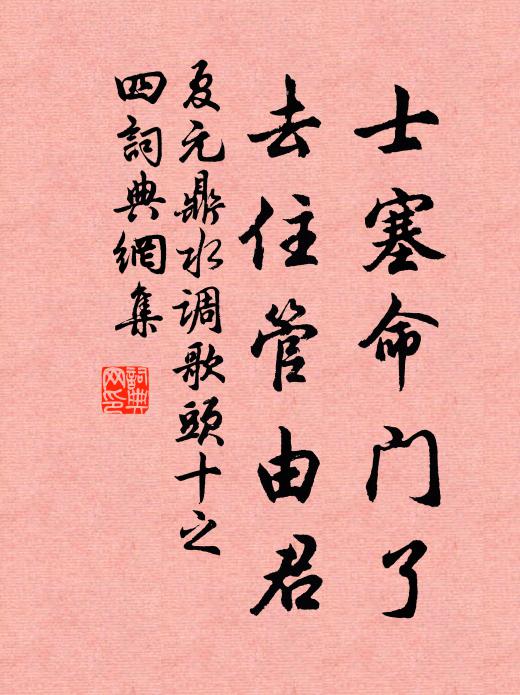 士塞命门了
去住管由君
夏元鼎水调歌头十之
四詞典網集
詞典
网印